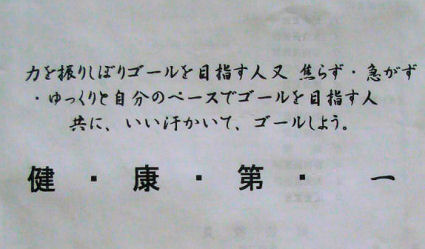 力を振りしぼりゴールを目指す人又 焦らず・急がず
・ゆっくりと自分のペースでゴールを目指す人
共に、いい汗かいて、ゴールしよう。
健・康・第・一